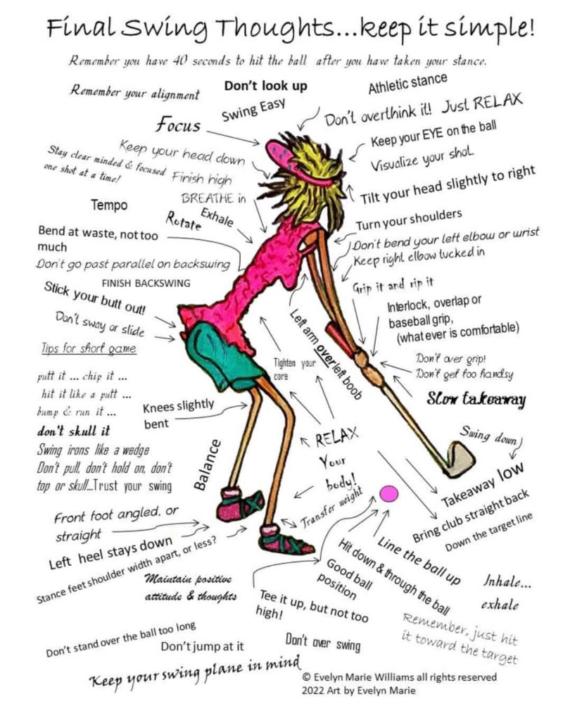 Final Swing Thoughts...keep it simple!
Remember you have 40 seconds to hit the ball after you have taken your stance.
Remember your alignment
Don't look up
Athletic stance
Swing Easy
Don't overthink it! Just RELAX
Focus
Keep your EYE on the ball
Keep your head down
Visualize your shot
Stay clear minded & focused
one shot at a time!
Finish high
Tilt your head slightly to right
BREATHE in
Tempo
Exhale
Rotate
Turn your shoulders
Bend at waste, not too
much
Don't bend your left elbow or wrist
Keep right elbow tucked in
Don't go past parallel on backswing
FINISH BACKSWING
Grip it and rip it
Stick your butt out!
Interlock, overlap or
baseball grip,
(what ever is comfortable)
Don't sway or slide
Left arm over left boob
Tips for short game
Tighten your
core
Don't over grip!
Don't get too handsy
putt it ... chip it ...
hit it like a putt ...
bump & run it ...
don't skull it
Swing irons like a wedge
Don't pull, don't hold on, don't
top or skull...Trust your swing
Slow takeaway
Knees slightly
bent
Swing down
RELAX
Your
body!
Balance
Takeaway low
Transfer weight
Bring club straight back
Down the target line
Front foot angled, or
straight
Left heel stays down
Stance feet shoulder width apart, or less?
Line the ball up
Hit down & through the ball
Good ball
position
Maintain positive
attitude & thoughts
Inhale...
exhale
Tee it up, but not too
high!
Remember, just hit
it toward the target
Don't stand over the ball too long
Don't jump at it
Don't over swing
Keep your swing plane in mind
© Evelyn Marie Williams all rights reserved
2022 Art by Evelyn Marie